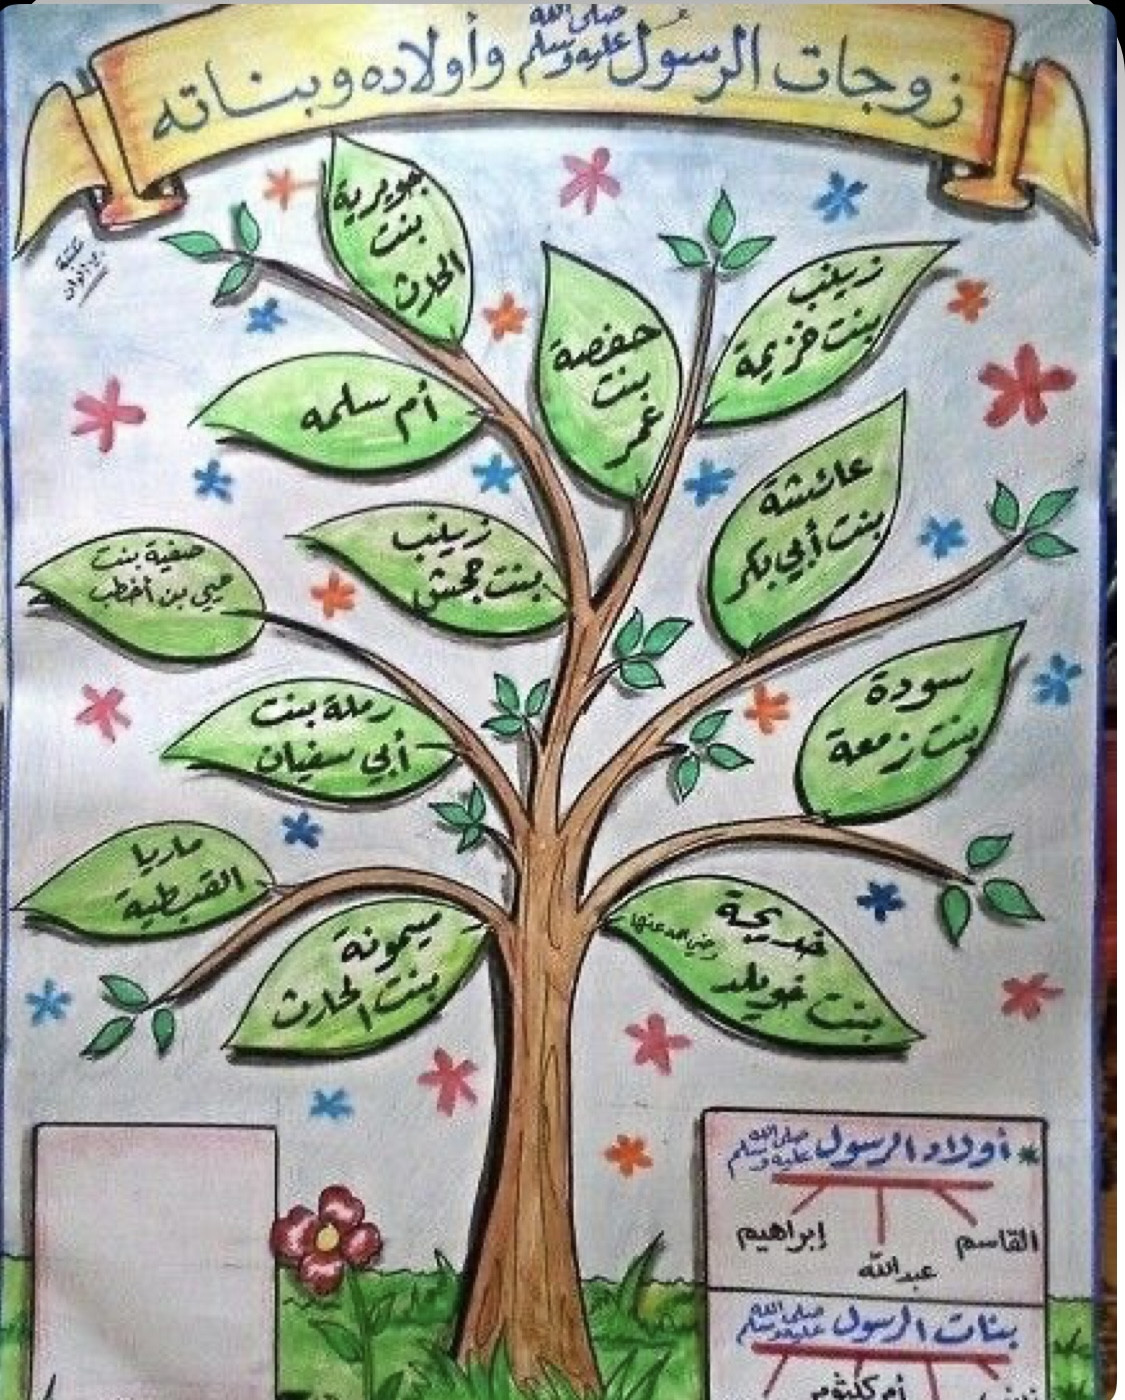 زوجات الرسول صلى الله عليه وسلم وأولاده وبناته
جويرية
بنت
الحارث
حفصة
بنت
عمر
زينب
بنت خزيمة
أم سلمه
عائشة
بنت أبي بكر
زينب
بنت جحش
صفية بنت
حيي بن أخطب
سودة
بنت زمعة
رملة بنت
أبي سفيان
ماريا
القبطية
ميمونة
بنت الحارث
خديجة
رضي الله عنها
بنت خويلد
أولاد الرسول صلى الله عليه وسلم
القاسم
عبد الله
إبراهيم
بنات الرسول صلى الله عليه وسلم
أم كلثوم